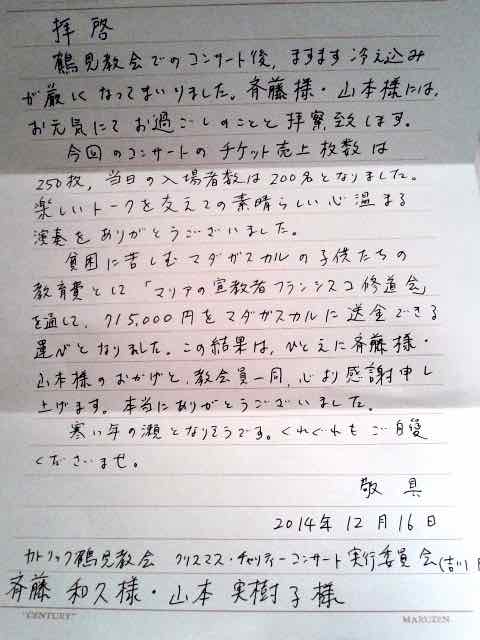 拝啓
鶴見教会でのコンサート後、ますます冷え込み
が厳しくなってまいりました。斉藤様・山本様には、
お元気にてお過ごしのことと拝察致します。
今回のコンサートのチケット売上枚数は
250枚、当日の入場者数は200名となりました。
楽しいトークを交えての素晴らしい心温まる
演奏をありがとうございました。
貧困に苦しむマダガスカルの子供たちの
教育費として「マリアの宣教者フランシスコ修道会」
を通して、715,000円をマダガスカルに送金できる
運びとなりました。この結果は、ひとえに斉藤様・
山本様のおかげと、教会員一同、心より感謝申し
上げます。本当にありがとうございました。
寒い年の瀬となりそうです。くれぐれもご自愛
くださいませ。
敬具
2014年12月16日
カトリック鶴見教会 クリスマス・チャリティーコンサート実行委員会(吉川
斉藤和久様・山本実樹子様
"CENTURY" MARUZEN